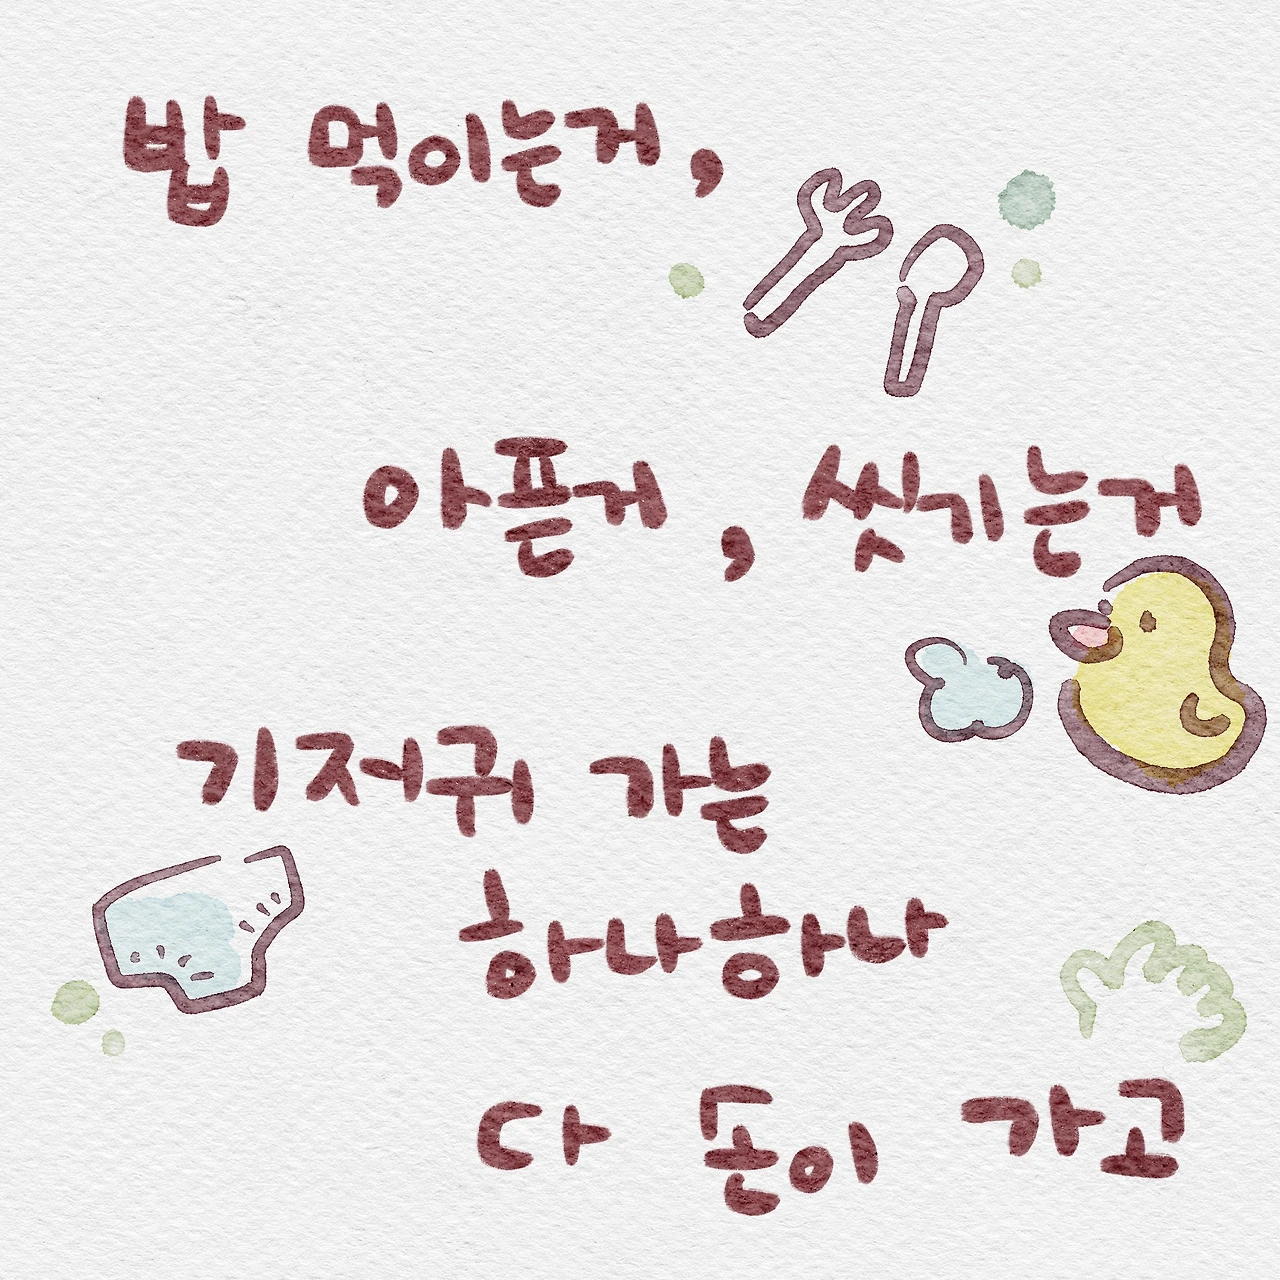 밥 먹이는거,
아픈거, 씻기는거
기저귀 가는
하나하나
다 손이 가고